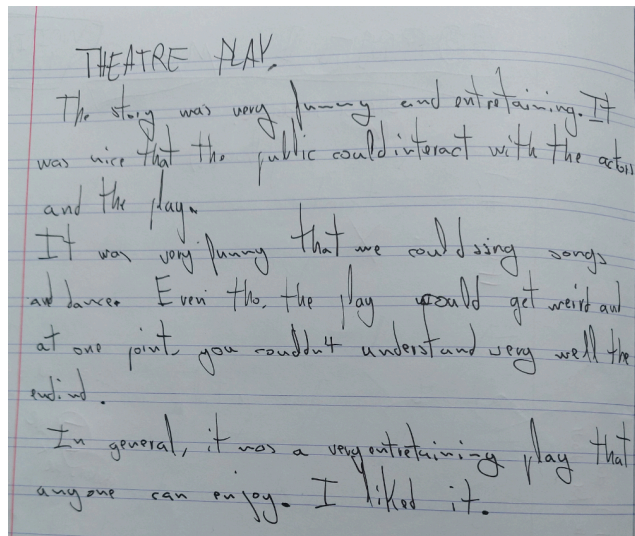 THEATRE PLAY.
The story was very funny and entretaining. It
was nice that the public could interact with the actors
and the play.
It was very funny that we could sing songs
and dance. Even tho, the play would get weird and
at one point, you couldn't understand very well the
endind.
In general, it was a very entretaining play that
anyone can enjoy. I liked it.